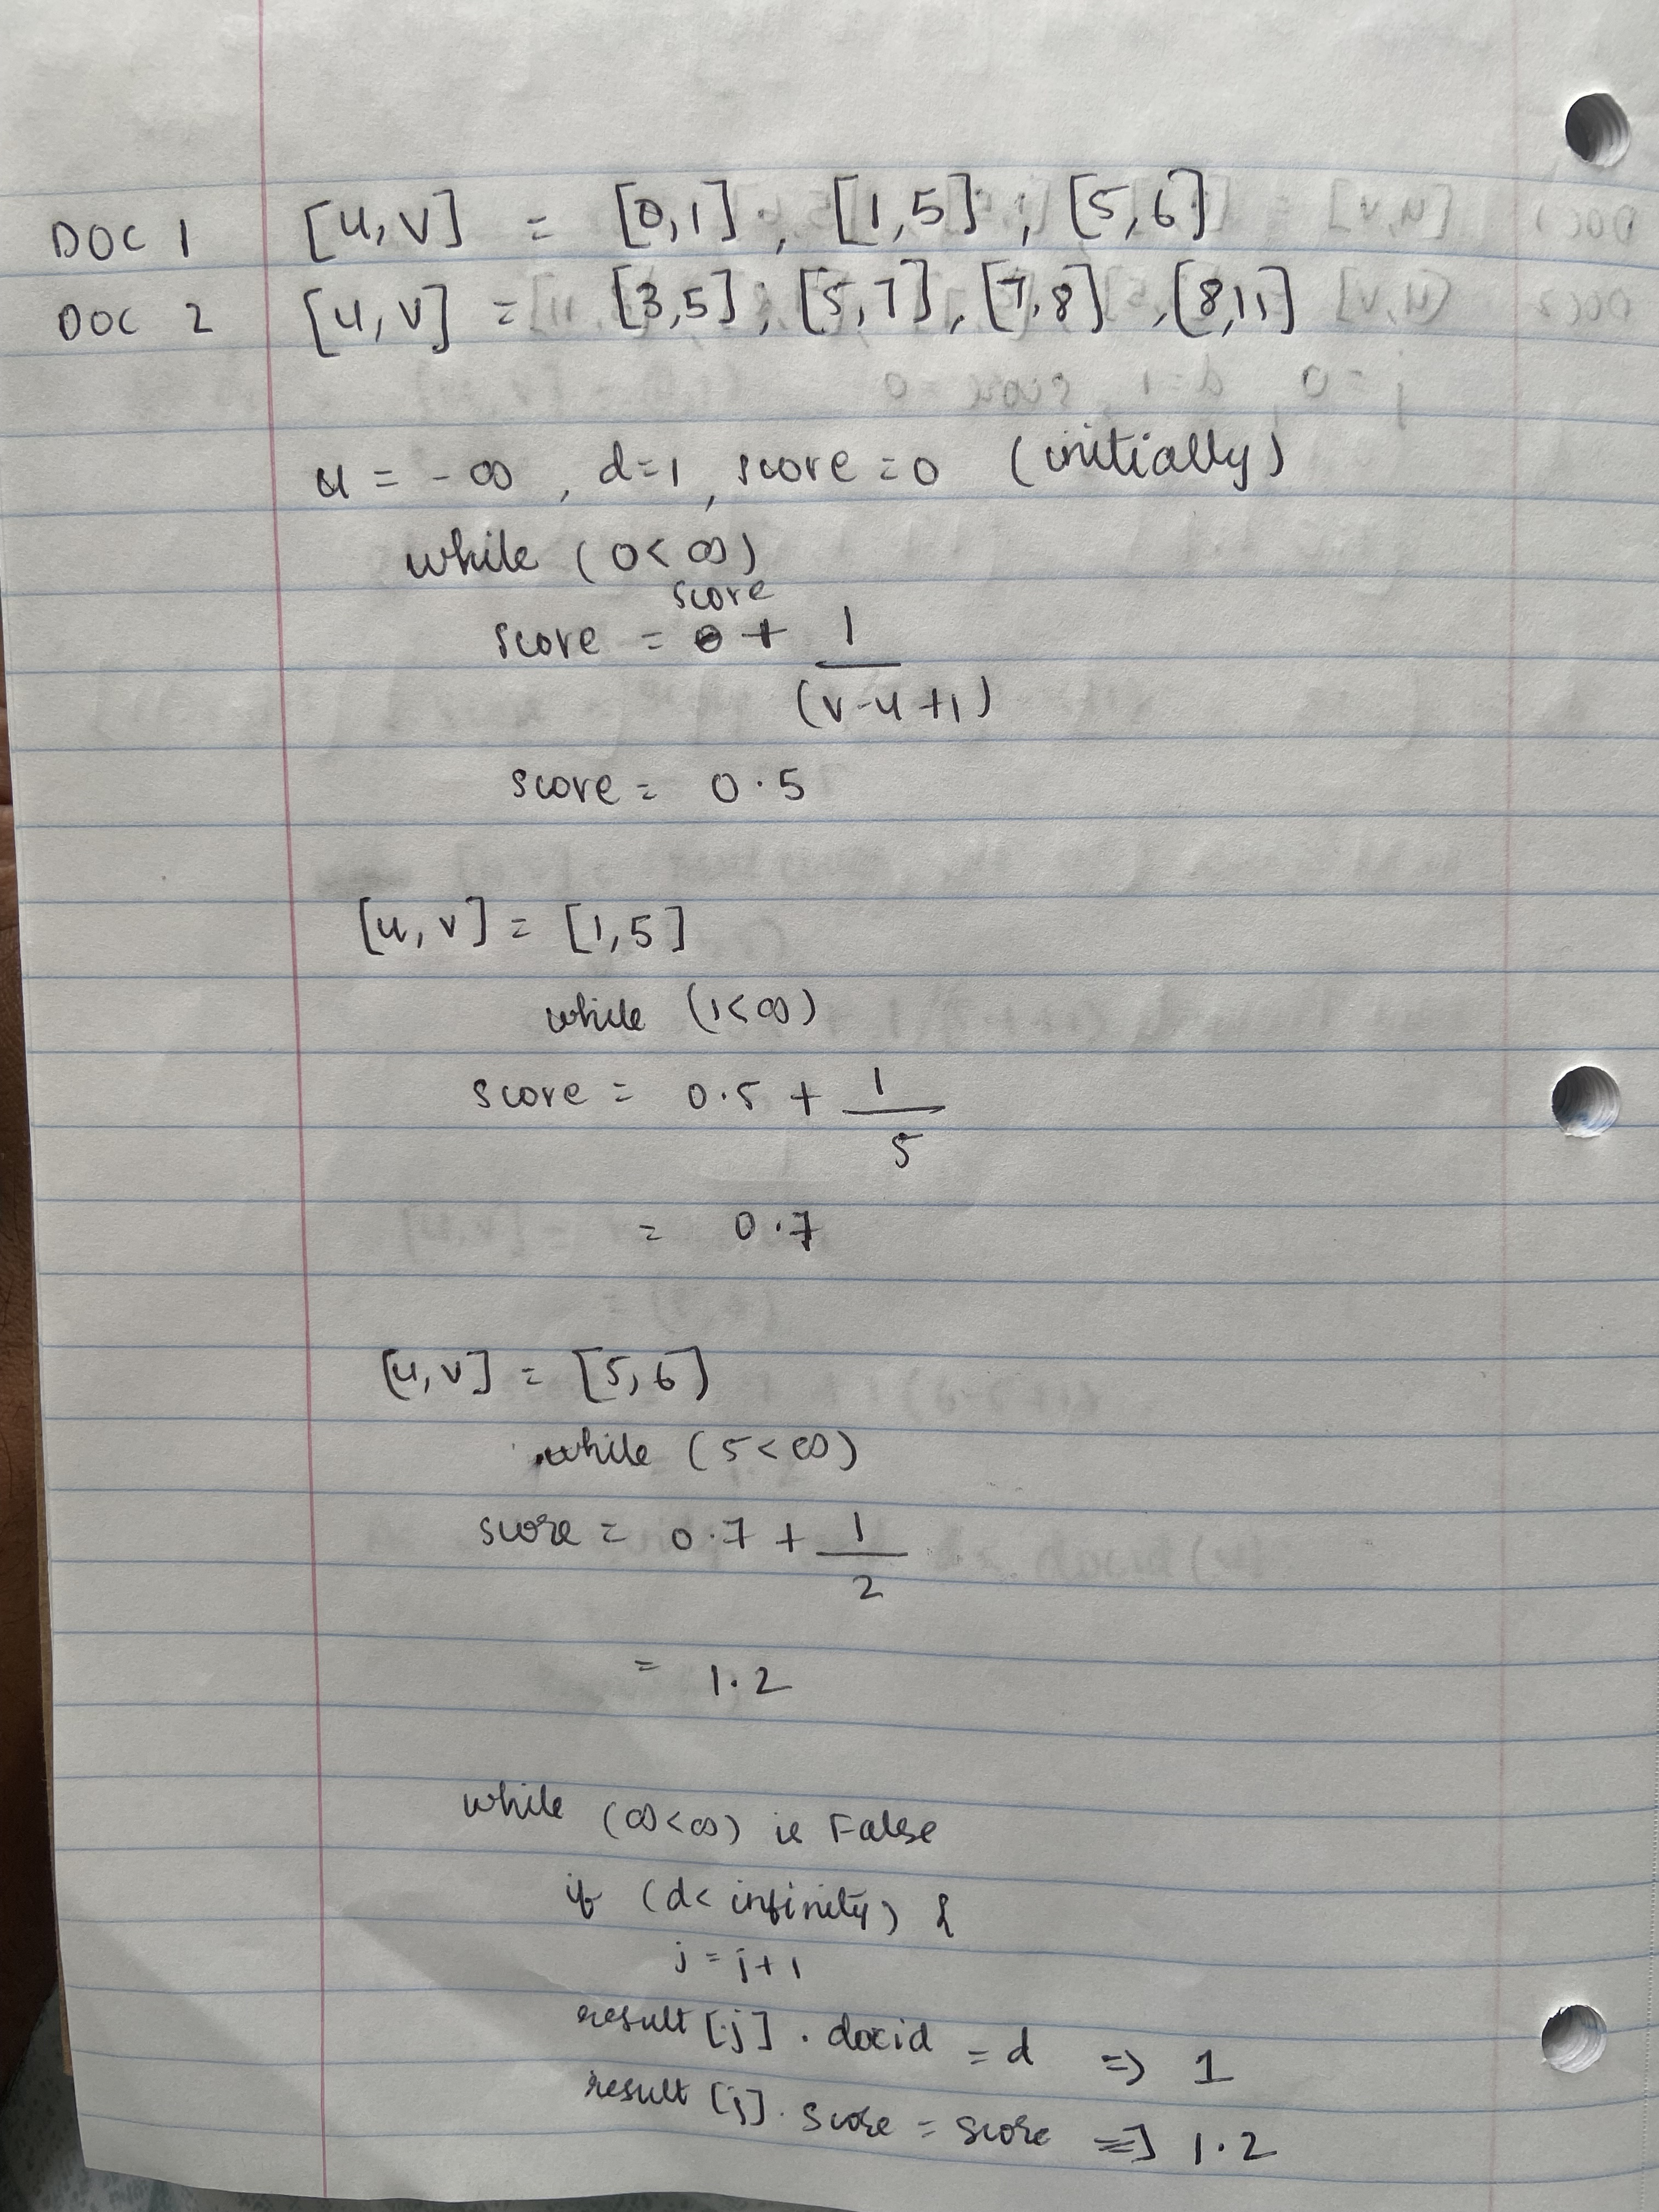 DOC 1 [u,v] = [0,1], [1,5], [5,6]
DOC 2 [u,v] = [3,5], [5,7], [7,8], [8,11]
u = -∞, d=1, score=0 (initially)
while (0<∞)
score
score = 0 + 1
(v-u+1)
score = 0.5
[u,v] = [1,5]
while (1<∞)
score = 0.5 + 1
5
= 0.7
[u,v] = [5,6]
while (5<∞)
score = 0.7 + 1
2
= 1.2
while (∞<∞) is False
if (d< infinity) {
j = j+1
result[j].docid = d => 1
result[j].score = score => 1.2